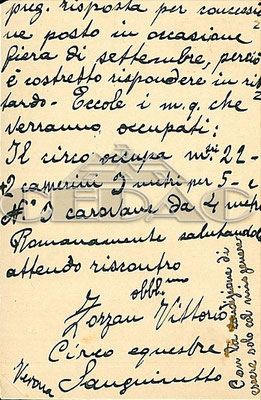 preg. risposta per concessio
ne posto in occasione
fiera di settembre, perciò
è costretto rispondere in ri
tardo. Eccole i m.q. che
verranno occupati:
Il circo occupa m/ri 22-
+2 camerini 3 metri per 5- e
N° 3 carovane da 4 metri
Romanamente salutandola
attendo riscontro
obbl.mo
Zorzan Vittorio
Circo equestre
Verona Sanguinetto
Con condizione di
essere solo col mio genere